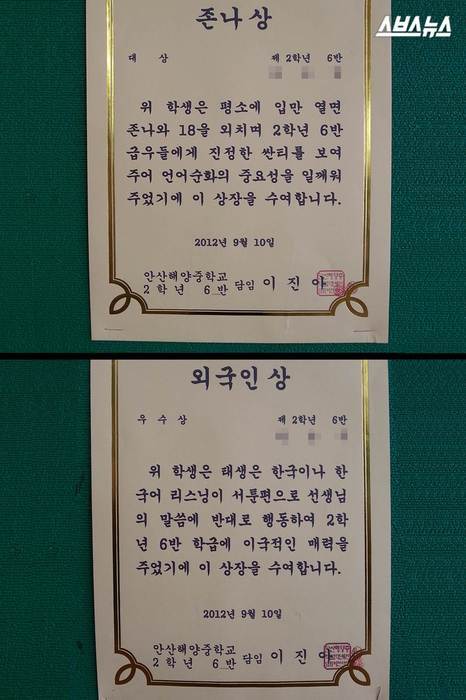 스브스뉴스
존나상
대 상 제 2학년 6반
위 학생은 평소에 입만 열면
존나와 18을 외치며 2학년 6반
급우들에게 진정한 싼티를 보여
주어 언어순화의 중요성을 일깨워
주었기에 이 상장을 수여합니다.
2012년 9월 10일
안산해양중학교
2학년 6반 담임 이 진 아
외국인상
우 수 상 제 2학년 6반
위 학생은 태생은 한국이나 한
국어 리스닝이 서툰편으로 선생님
의 말씀에 반대로 행동하여 2학
년 6반 학급에 이국적인 매력을
주었기에 이 상장을 수여합니다.
2012년 9월 10일
안산해양중학교
2학년 6반 담임 이 진 아